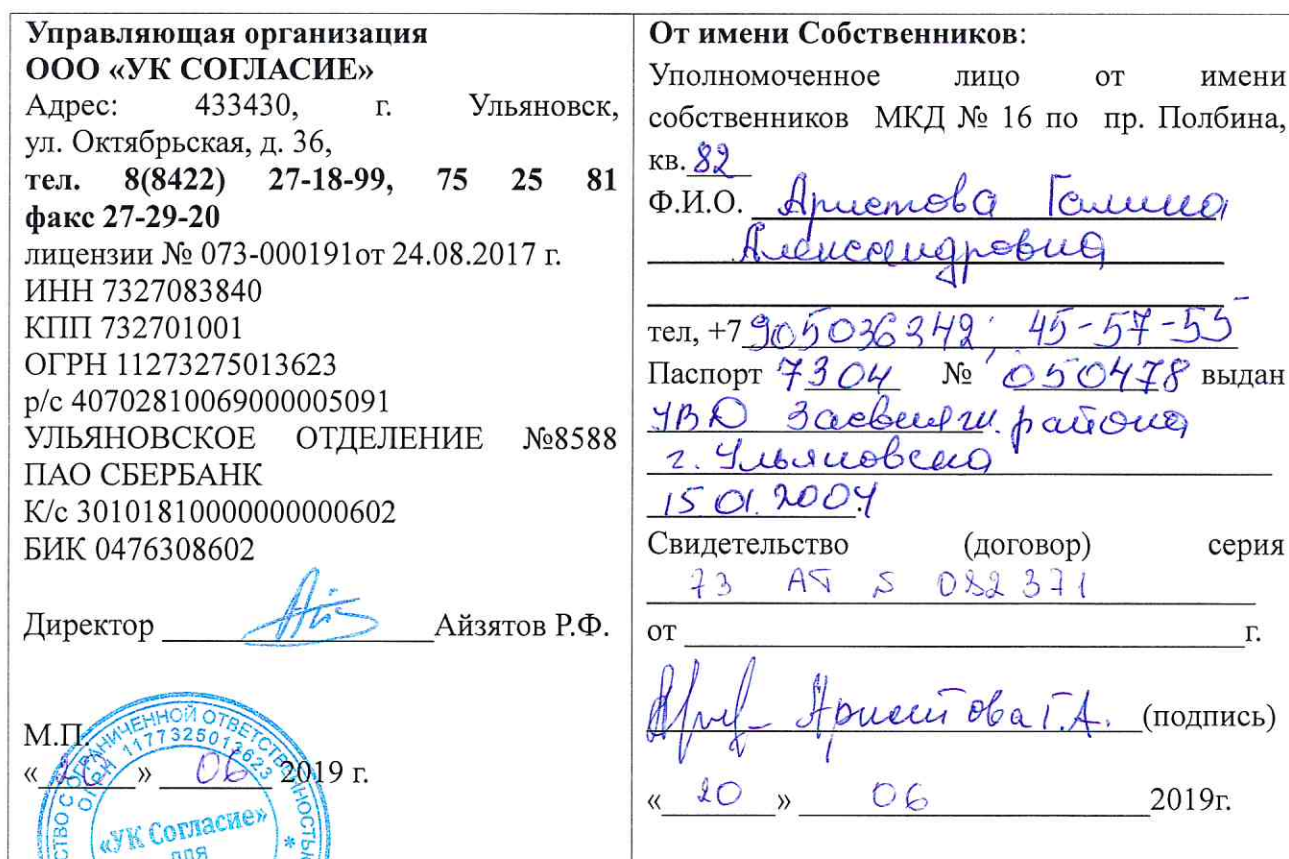 Управляющая организация
ООО «УК СОГЛАСИЕ»
Адрес: 433430, г. Ульяновск,
ул. Октябрьская, д. 36,
тел. 8(8422) 27-18-99, 75 25 81
факс 27-29-20
лицензии № 073-000191от 24.08.2017 г.
ИНН 7327083840
КПП 732701001
ОГРН 11273275013623
р/с 40702810069000005091
УЛЬЯНОВСКОЕ ОТДЕЛЕНИЕ №8588
ПАО СБЕРБАНК
К/с 30101810000000000602
БИК 0476308602
Директор Айзятов Р.Ф.
М.П.
« 20 » 06 2019 г.
ОГРАНИЧЕННОЙ ОТВЕТСТВЕННОСТЬЮ
ОГРН 1177325013623
«УК Согласие»
для
От имени Собственников:
Уполномоченное лицо от имени
собственников МКД № 16 по пр. Полбина,
кв. 82
Ф.И.О. Аристова Галина
Александровна
тел, +7 905036342; 45-57-55
Паспорт 7304 № 050478 выдан
УВД Засвияж. района
г. Ульяновска
15.01.2004
Свидетельство (договор) серия
73 АТ 082371
от г.
Аристова Г.А. (подпись)
« 20 » 06 2019г.